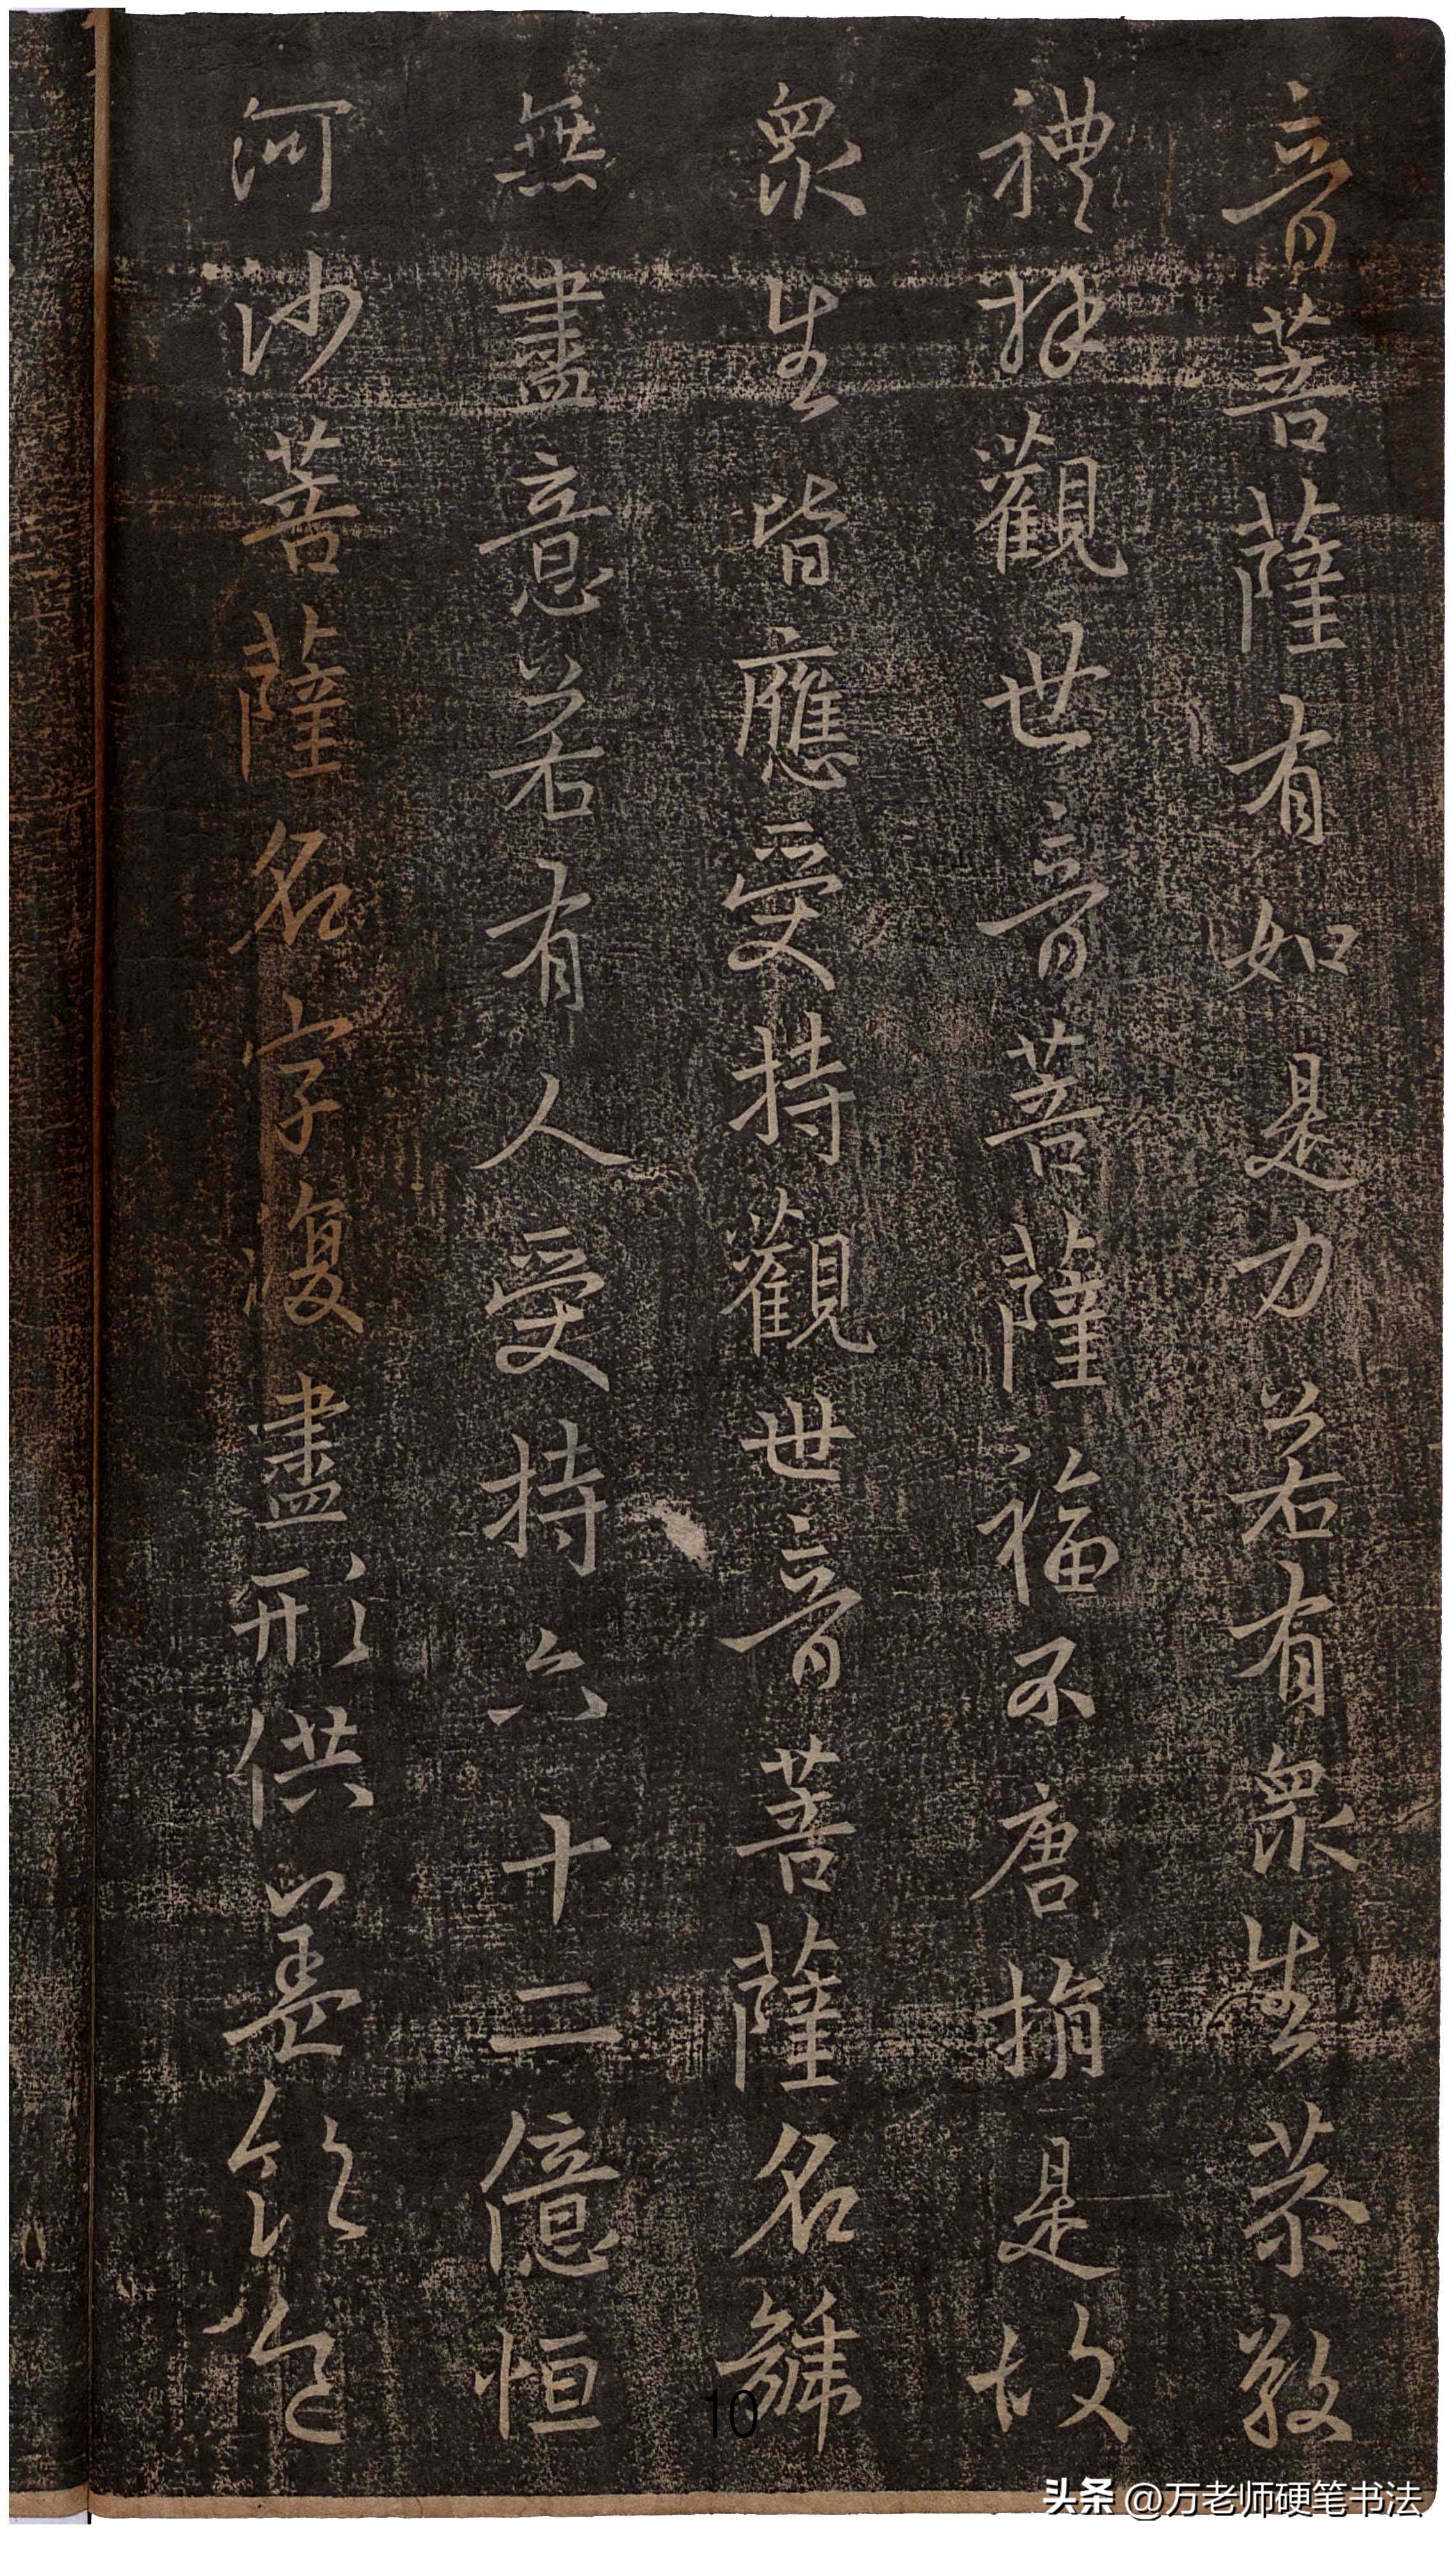 音菩薩有如是力若有衆生恭敬
禮拜觀世音菩薩福不唐捐是故
衆生皆應受持觀世音菩薩名號
無盡意若有人受持六十二億恒
河沙菩薩名字復盡形供養飲食
10
头条 @万老师硬笔书法